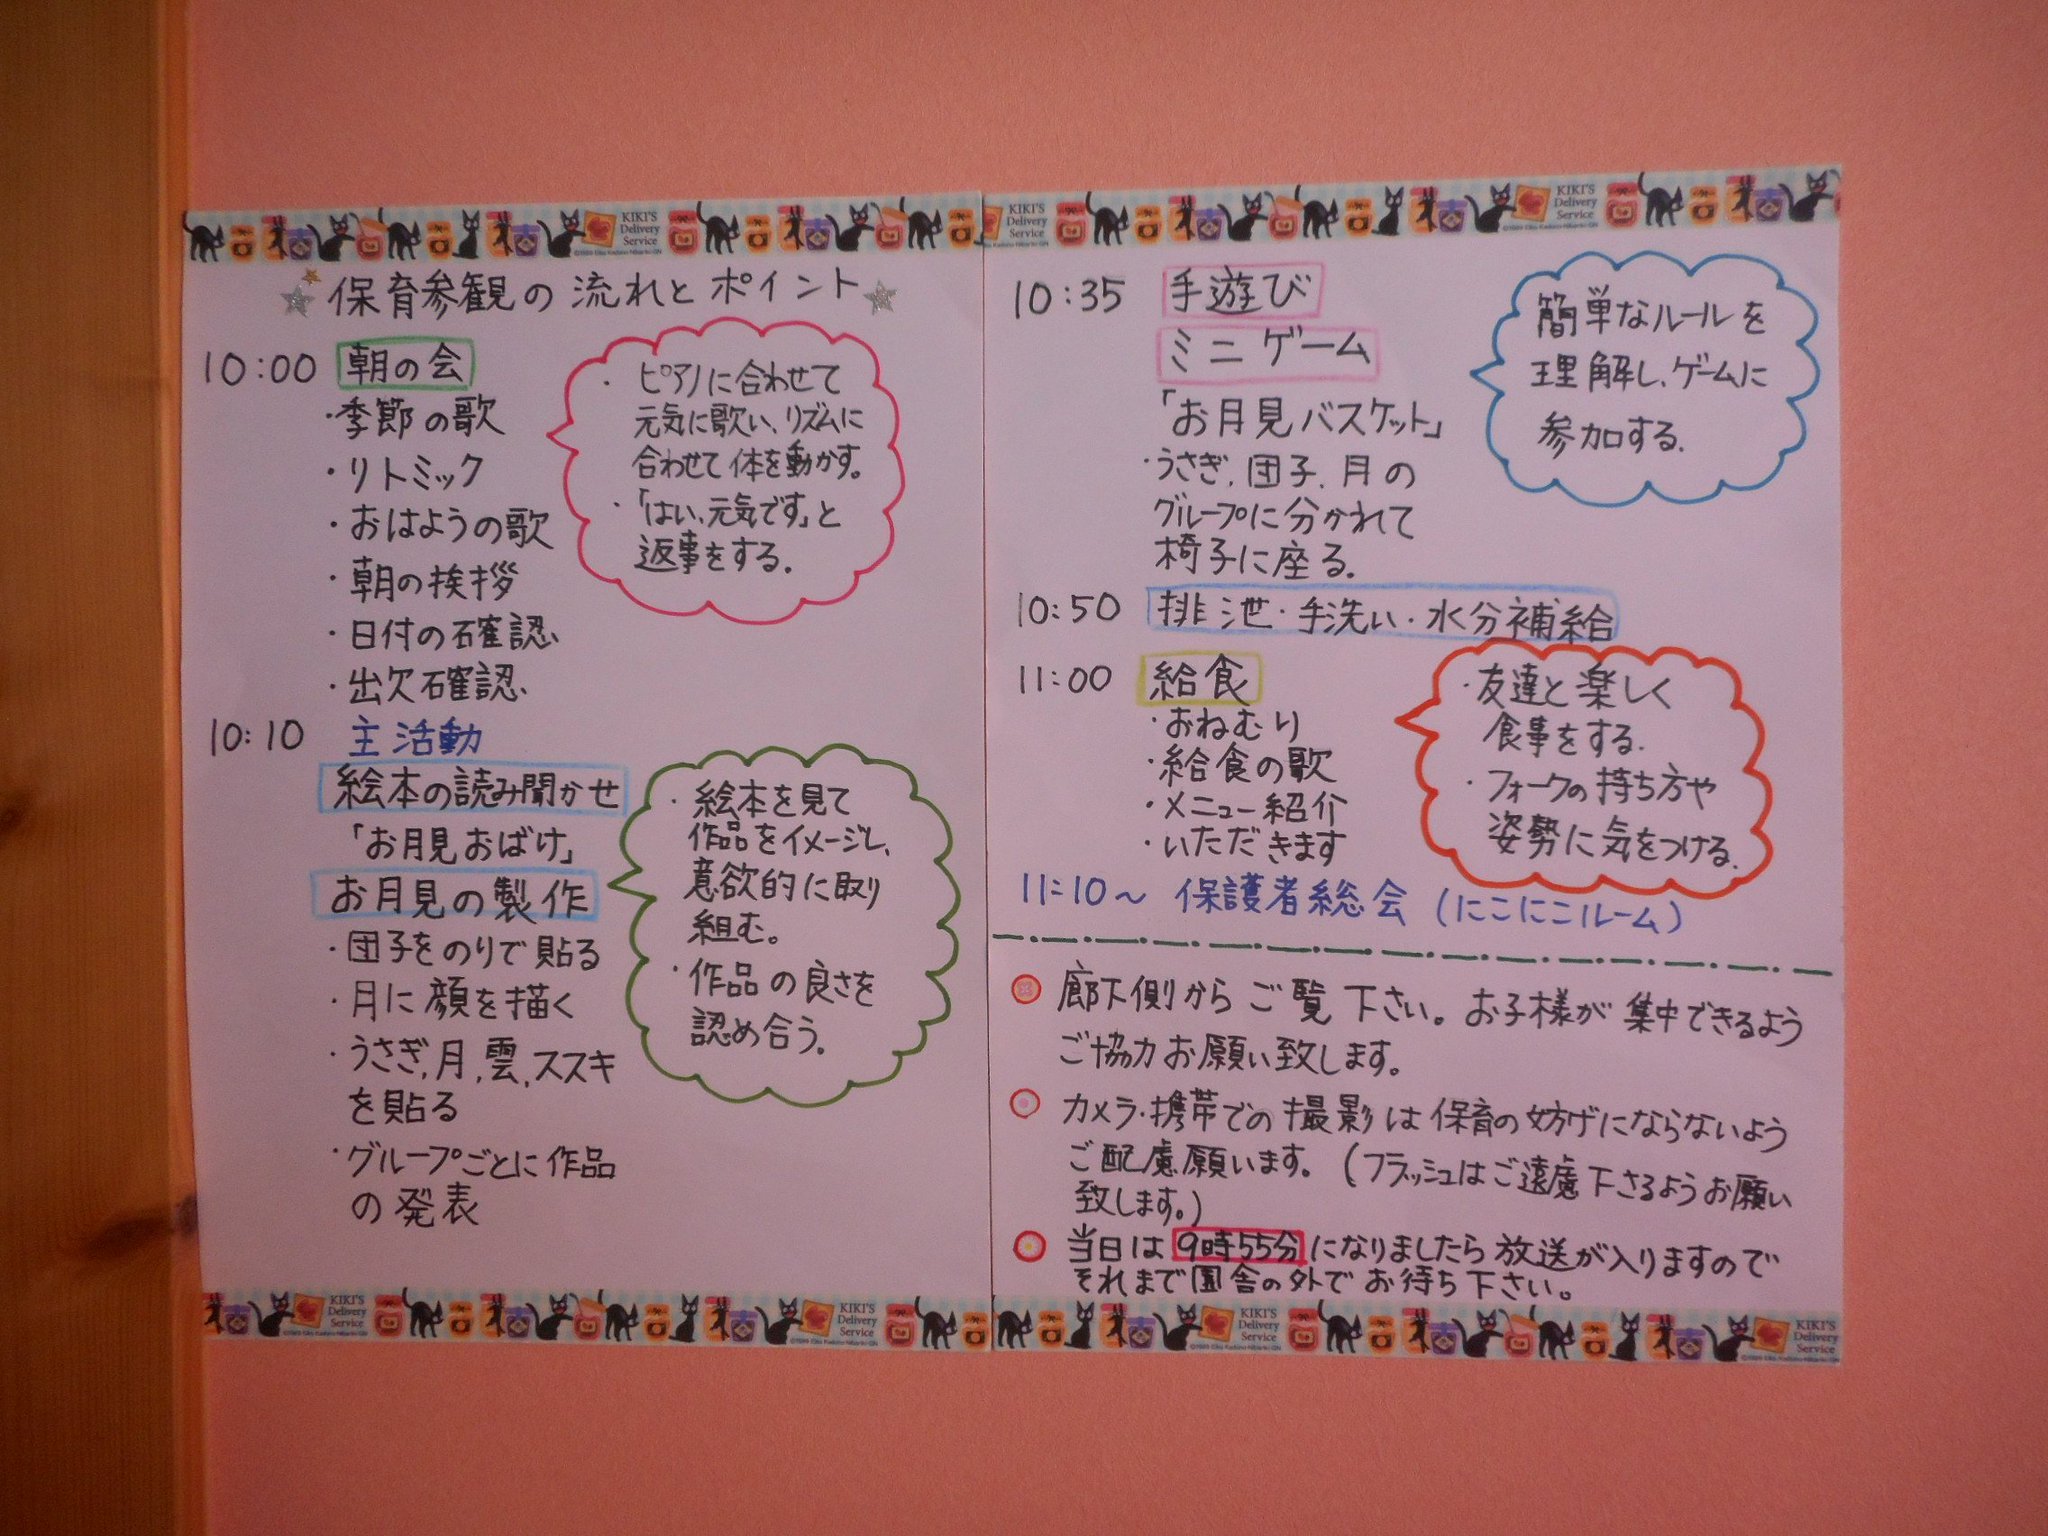 KIKI'S
Delivery
Service
KIKI'S
Delivery
Service
KIKI'S
Delivery
Service
保育参観の流れとポイント
10:00 朝の会
・季節の歌
・リトミック
・おはようの歌
・朝の挨拶
・日付の確認
・出欠確認
・ピアノに合わせて
元気に歌い、リズムに
合わせて体を動かす。
・「はい、元気です」と
返事をする。
10:10 主活動
絵本の読み聞かせ
「お月見おばけ」
お月見の製作
・団子をのりで貼る
・月に顔を描く
・うさぎ、月、雲、ススキ
を貼る
・グループごとに作品
の発表
・絵本を見て
作品をイメージし、
意欲的に取り
組む。
・作品の良さを
認め合う。
10:35 手遊び
ミニゲーム
「お月見バスケット」
・うさぎ、団子、月の
グループに分かれて
椅子に座る。
簡単なルールを
理解し、ゲームに
参加する。
10:50 排泄・手洗い・水分補給
11:00 給食
・おねむり
・給食の歌
・メニュー紹介
・いただきます
・友達と楽しく
食事をする。
・フォークの持ち方や
姿勢に気をつける。
11:10～ 保護者総会(にこにこルーム)
廊下側からご覧下さい。お子様が集中できるよう
ご協力お願い致します。
カメラ・携帯での撮影は保育の妨げにならないよう
ご配慮願います。(フラッシュはご遠慮下さるようお願い
致します。)
当日は9時55分になりましたら放送が入りますので
それまで園舎の外でお待ち下さい。
KIKI'S
Delivery
Service
KIKI'S
Delivery
Service
KIKI'S
Delivery
Service
KIKI'S
Delivery
Service